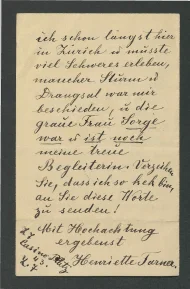 ich schon längst hier
in Zürich u müsste
viel Schweres erleben,
mancher Sturm u
Drangsal war mir
beschieden, u die
graue Frau Sorge
war u ist noch
meine treue
Begleiterin. Verzeihen
Sie, dass ich so keck bin,
an Sie diese Worte
zu senden!
Mit Hochachtung
ergebenst
Henriette
Casino Platz